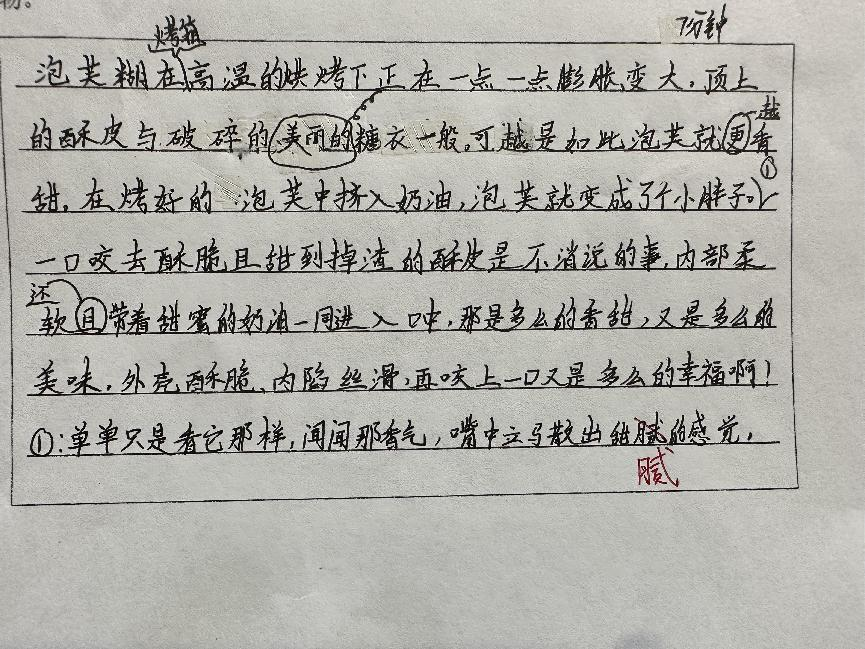 物。
7分钟
烤箱
泡芙糊在高温的烘烤下正在一点一点膨胀变大，顶上
的酥皮与破碎的美丽的糖衣一般。可越是如此泡芙就更香
越
①
甜。在烤好的泡芙中挤入奶油，泡芙就变成了个小胖子。
一口咬去酥脆且甜到掉渣的酥皮是不消说的事，内部柔
还
软且带着甜蜜的奶油一同进入口中，那是多么的香甜，又是多么的
美味，外壳酥脆、内陷丝滑，再咬上一口又是多么的幸福啊！
①：单单只是看它那样，闻闻那香气，嘴中立马散出甜腻的感觉。
腻